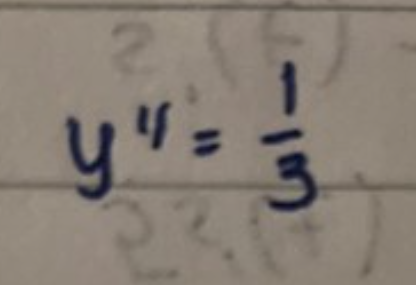 y'' = 1/3